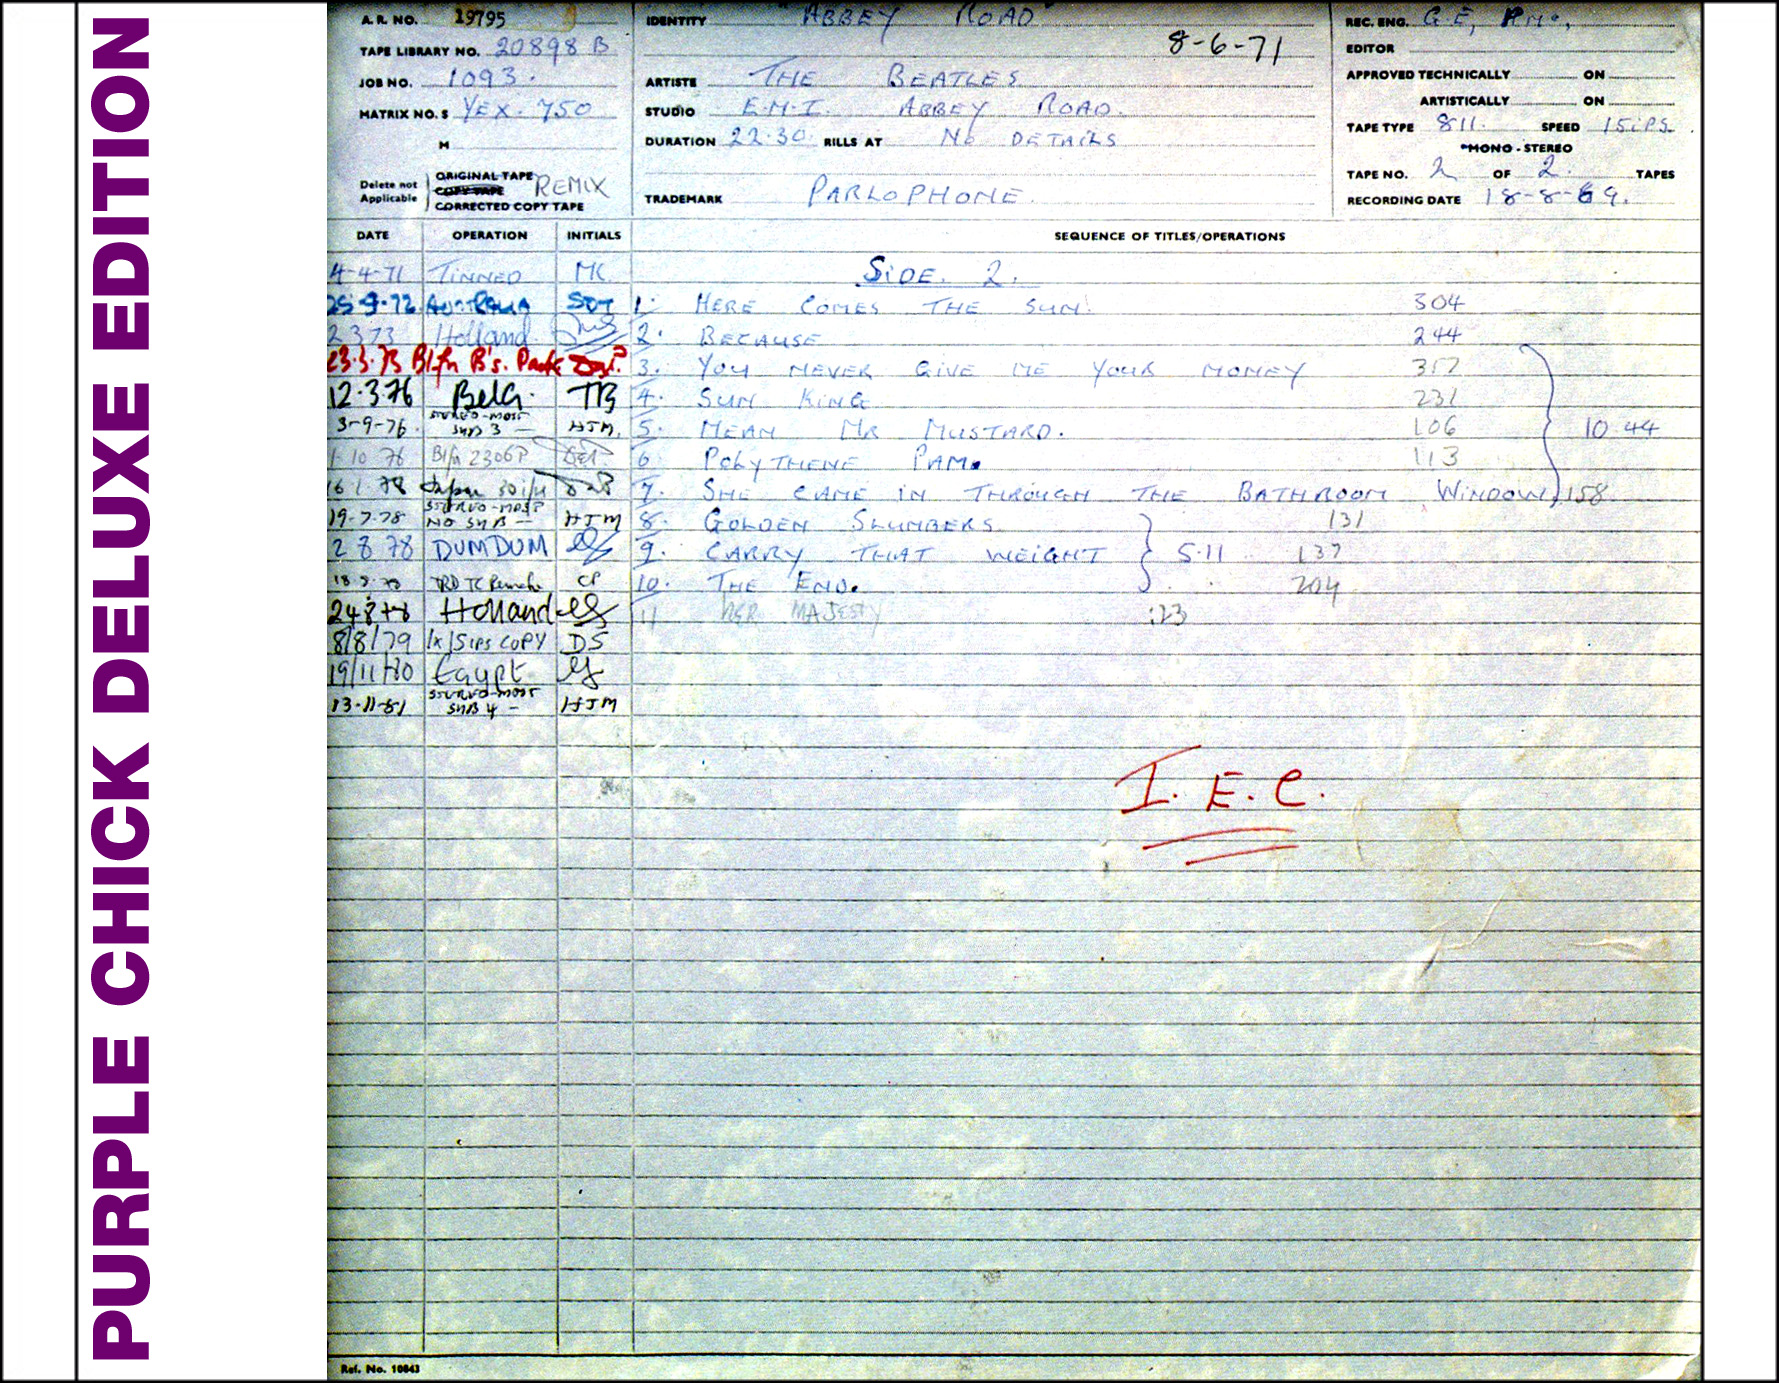 PURPLE CHICK DELUXE EDITION
A.R. NO. 19795
TAPE LIBRARY NO. 20898 B
JOB NO. 1093.
MATRIX NO. S YEX. 750
M
Delete not Applicable
ORIGINAL TAPE REMIX
COPY TAPE
CORRECTED COPY TAPE
IDENTITY "ABBEY ROAD"
8-6-71
ARTISTE THE BEATLES
STUDIO E.M.I. ABBEY ROAD.
DURATION 22.30. RILLS AT No DETAILS
TRADEMARK PARLOPHONE.
REC. ENG. G.E,
EDITOR
APPROVED TECHNICALLY ON
ARTISTICALLY ON
TAPE TYPE 811. SPEED 15 iPS.
*MONO - STEREO
TAPE NO. 2 OF 2. TAPES
RECORDING DATE 18-8-69.
DATE OPERATION INITIALS SEQUENCE OF TITLES/OPERATIONS
SIDE. 2.
4-4-71 TINNED MC
25-9-72 AUSTRALIA 1. HERE COMES THE SUN. 304
2 3 73 Holland 2. BECAUSE 244
23.3.73 B's. 3. YOU NEVER GIVE ME YOUR MONEY 357
12.3.76 Belg. TB 4. SUN KING 231
3-9-76. STEREO-MOST SUB 3 - HJM. 5. MEAN MR MUSTARD. 106 10.44
1 10 76 2306P 6 POLYTHENE PAM. 113
16 1 78 Japan 7. SHE CAME IN THROUGH THE BATHROOM WINDOW 158
19-7-78 STEREO-MOST NO SUB - HJM 8. GOLDEN SLUMBERS 131
2 8 78 DUMDUM 9. CARRY THAT WEIGHT 5.11 137
CP 10. THE END. 204
24 8 78 Holland 11 HER MAJESTY :23
8/8/79 1x15ips COPY DS
19/11/80 Egypt
13-11-81 STEREO-MOST SUB 4 - HJM
I. E. C.
Ref. No. 10843